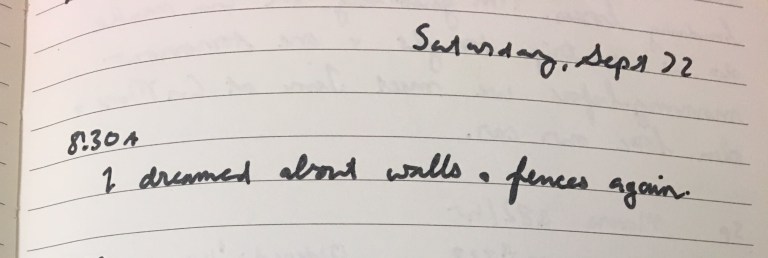 Saturday, Sept 22
8:30A
I dreamed about walls & fences again.